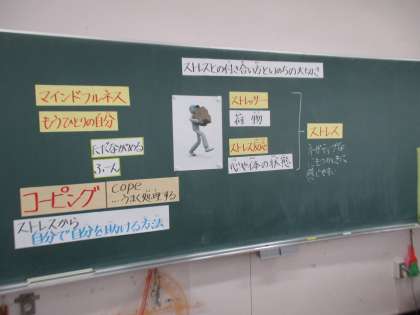 ストレスとの付き合い方といのちの大切さ
マインドフルネス
もうひとりの自分
ただながめる
ふーん
コーピング
cope
…うまく処理する
ストレスから
自分で自分を助ける方法
ストレッサー
荷物
ストレス反応
心や体の状態
ストレス